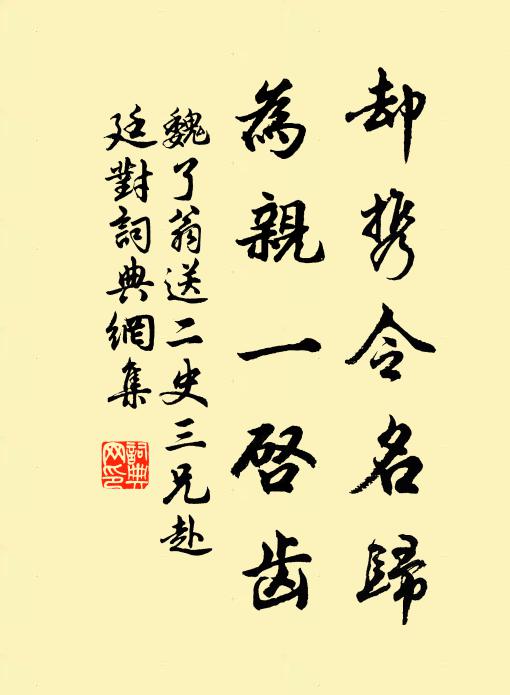 却携令名歸
為親一啓齿
魏了翁送二史三兄赴
廷對詞典網集
詞典网印